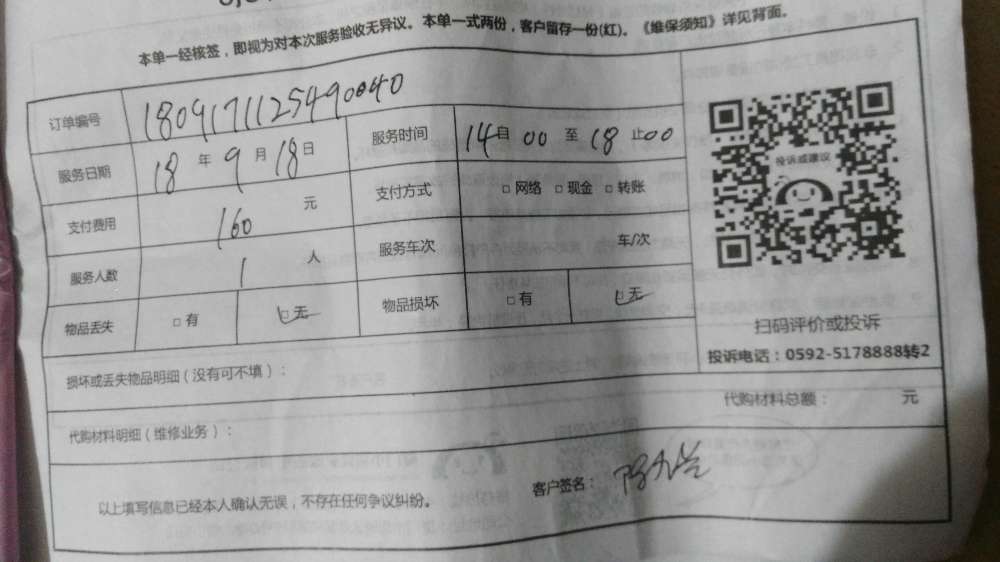 本单一经核签，即视为对本次服务验收无异议。本单一式两份，客户留存一份(红)。《维保须知》详见背面。
订单编号 1809171125490040
服务日期 18 年 9 月 18 日 服务时间 14 自 00 至 18 止 00
支付费用 160 元 支付方式 □ 网络 □ 现金 □ 转账
服务人数 1 人 服务车次 车/次
物品丢失 □ 有 □ 无 物品损坏 □ 有 □ 无
投诉或建议
扫码评价或投诉
投诉电话：0592-5178888转2
损坏或丢失物品明细（没有可不填）：
代购材料明细（维修业务）： 代购材料总额： 元
以上填写信息已经本人确认无误，不存在任何争议纠纷。 客户签名：